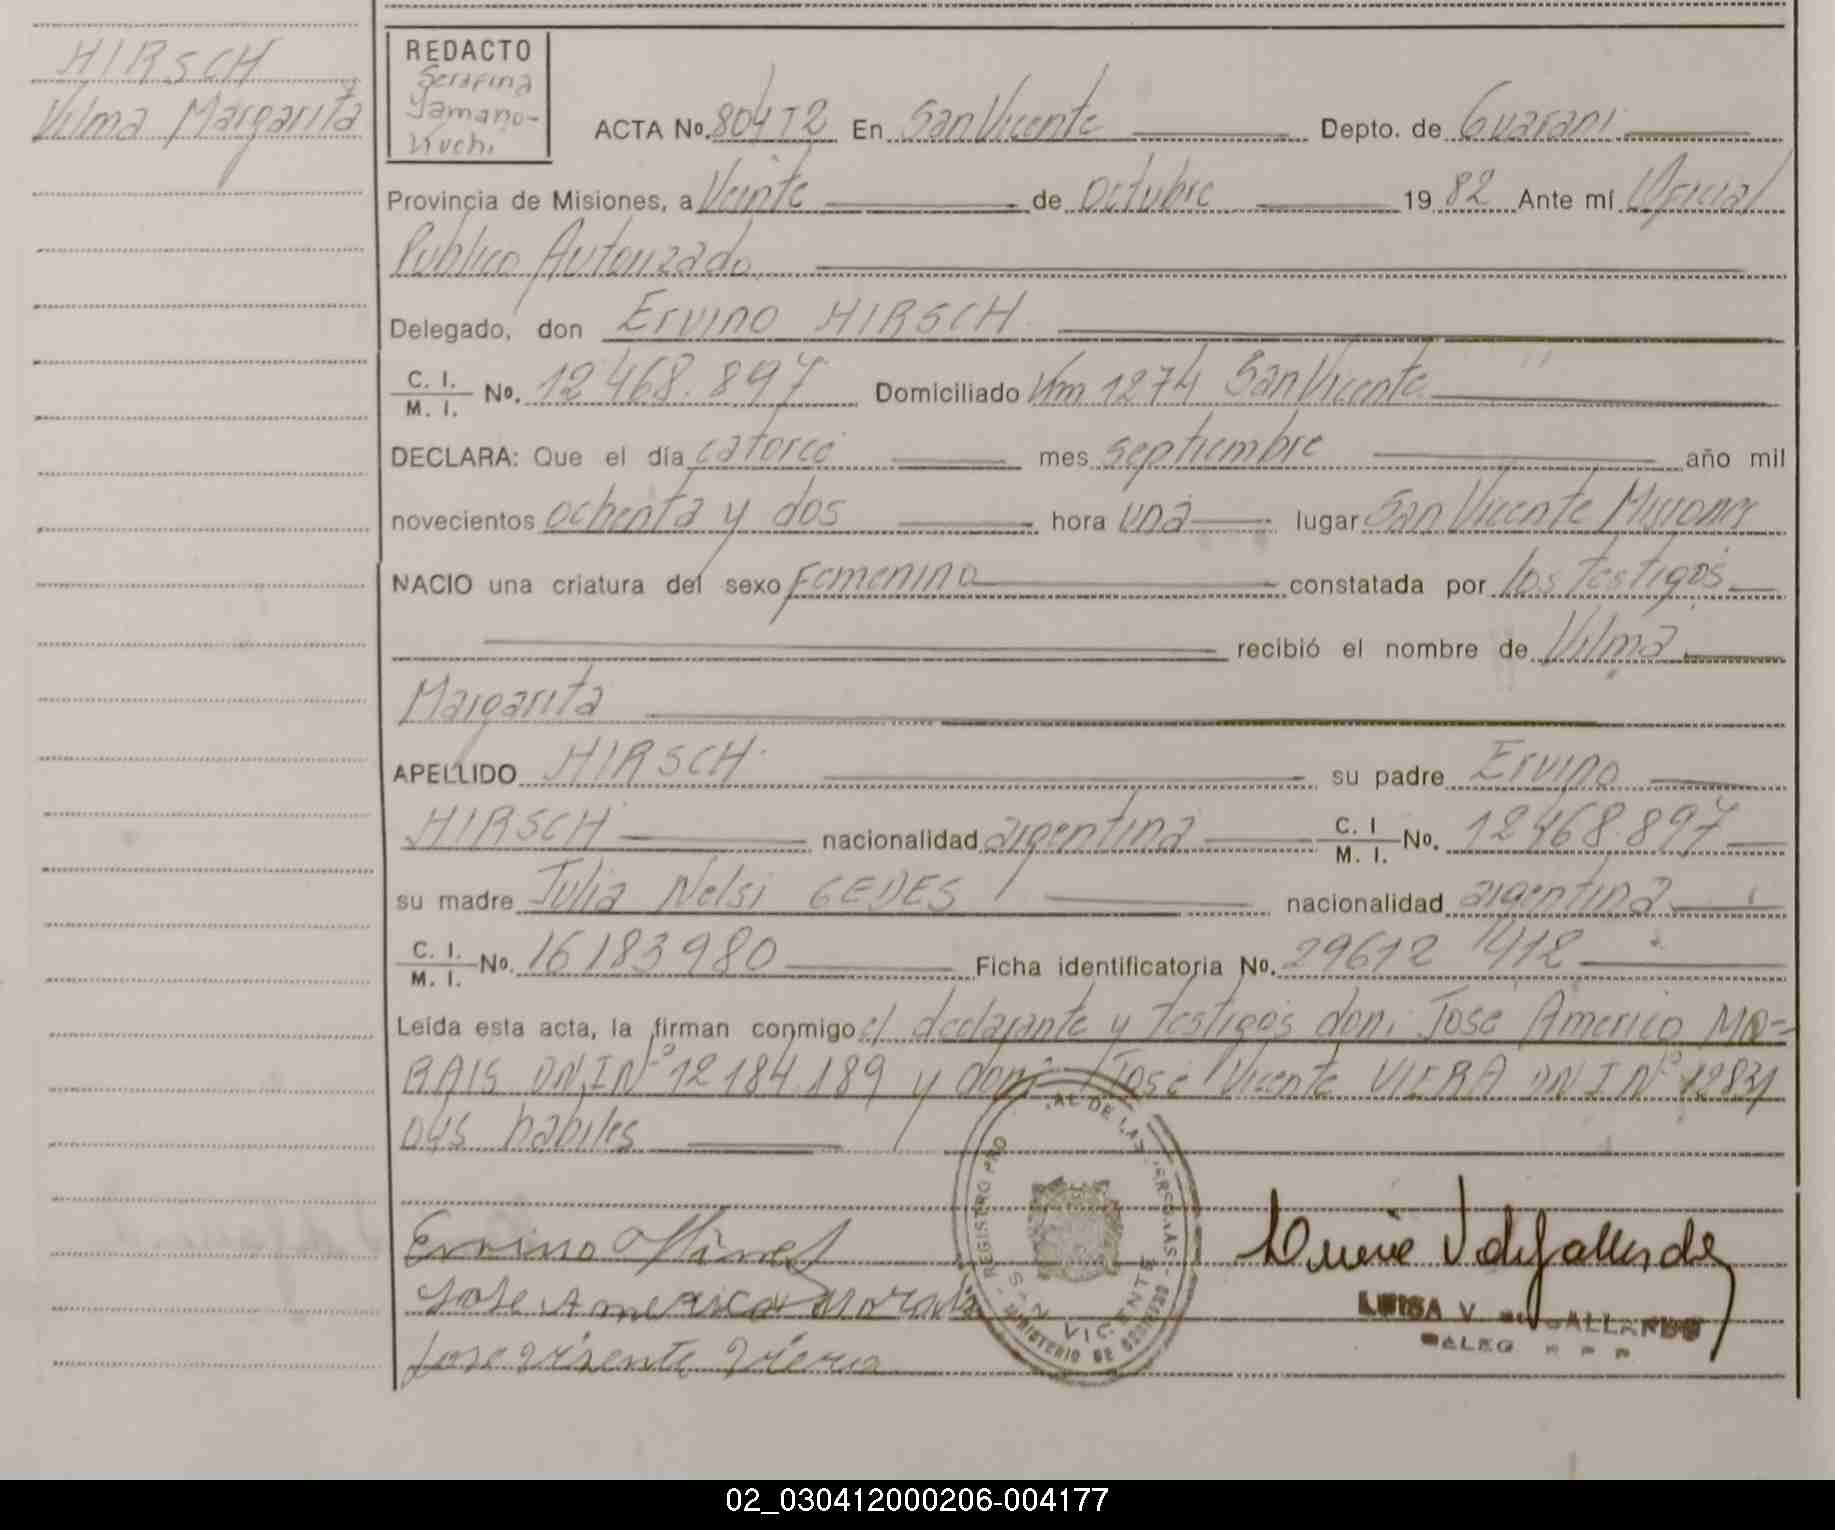 HIRSCH
Vilma Margarita
REDACTO
Serafina
Yamano-
Kuchi
ACTA No. 804 T2 En San Vicente Depto. de Guarani
Provincia de Misiones, a Veinte de Octubre 19 82 Ante mí Oficial
Publico Autorizado
Delegado, don Ervino HIRSCH
C. I.
M. I. No. 12468.897 Domiciliado Km 1274 San Vicente
DECLARA: Que el día catorce mes septiembre año mil
novecientos ochenta y dos hora una lugar San Vicente Misiones
NACIO una criatura del sexo femenino constatada por los testigos
recibió el nombre de Vilma
Margarita
APELLIDO HIRSCH su padre Ervino
HIRSCH nacionalidad argentina C. I
M. I. No. 12468.897
su madre Julia Nelsi GEDES nacionalidad argentina
C. I.
M. I. No. 16183980 Ficha identificatoria No. 29612 1412
Leída esta acta, la firman conmigo el declarante y testigos don: José Americo MO=
RAIS DN,I Nº 12184.189 y don: José Vicente VIERA DN I Nº 12831
045 habiles
Ervino Hirsch
Jose America Morais
Jose Visente Viera
REGISTRO PRO AL DE LAS PERSONAS
SAN VICENTE
MINISTERIO DE GOBIERNO
LUISA V. de GALLARDO